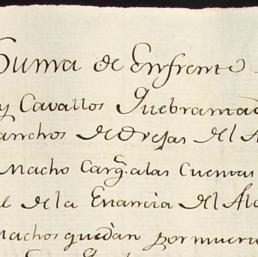 Suma de Enfrente
y Cavallos Quebramad
anchos de Orejas del A
Macho Carg.ª alas Cuentas
de la Enancia del Al
achos quedan por muer